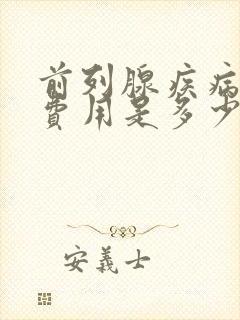 前列腺疾病
费用是多少
安義士